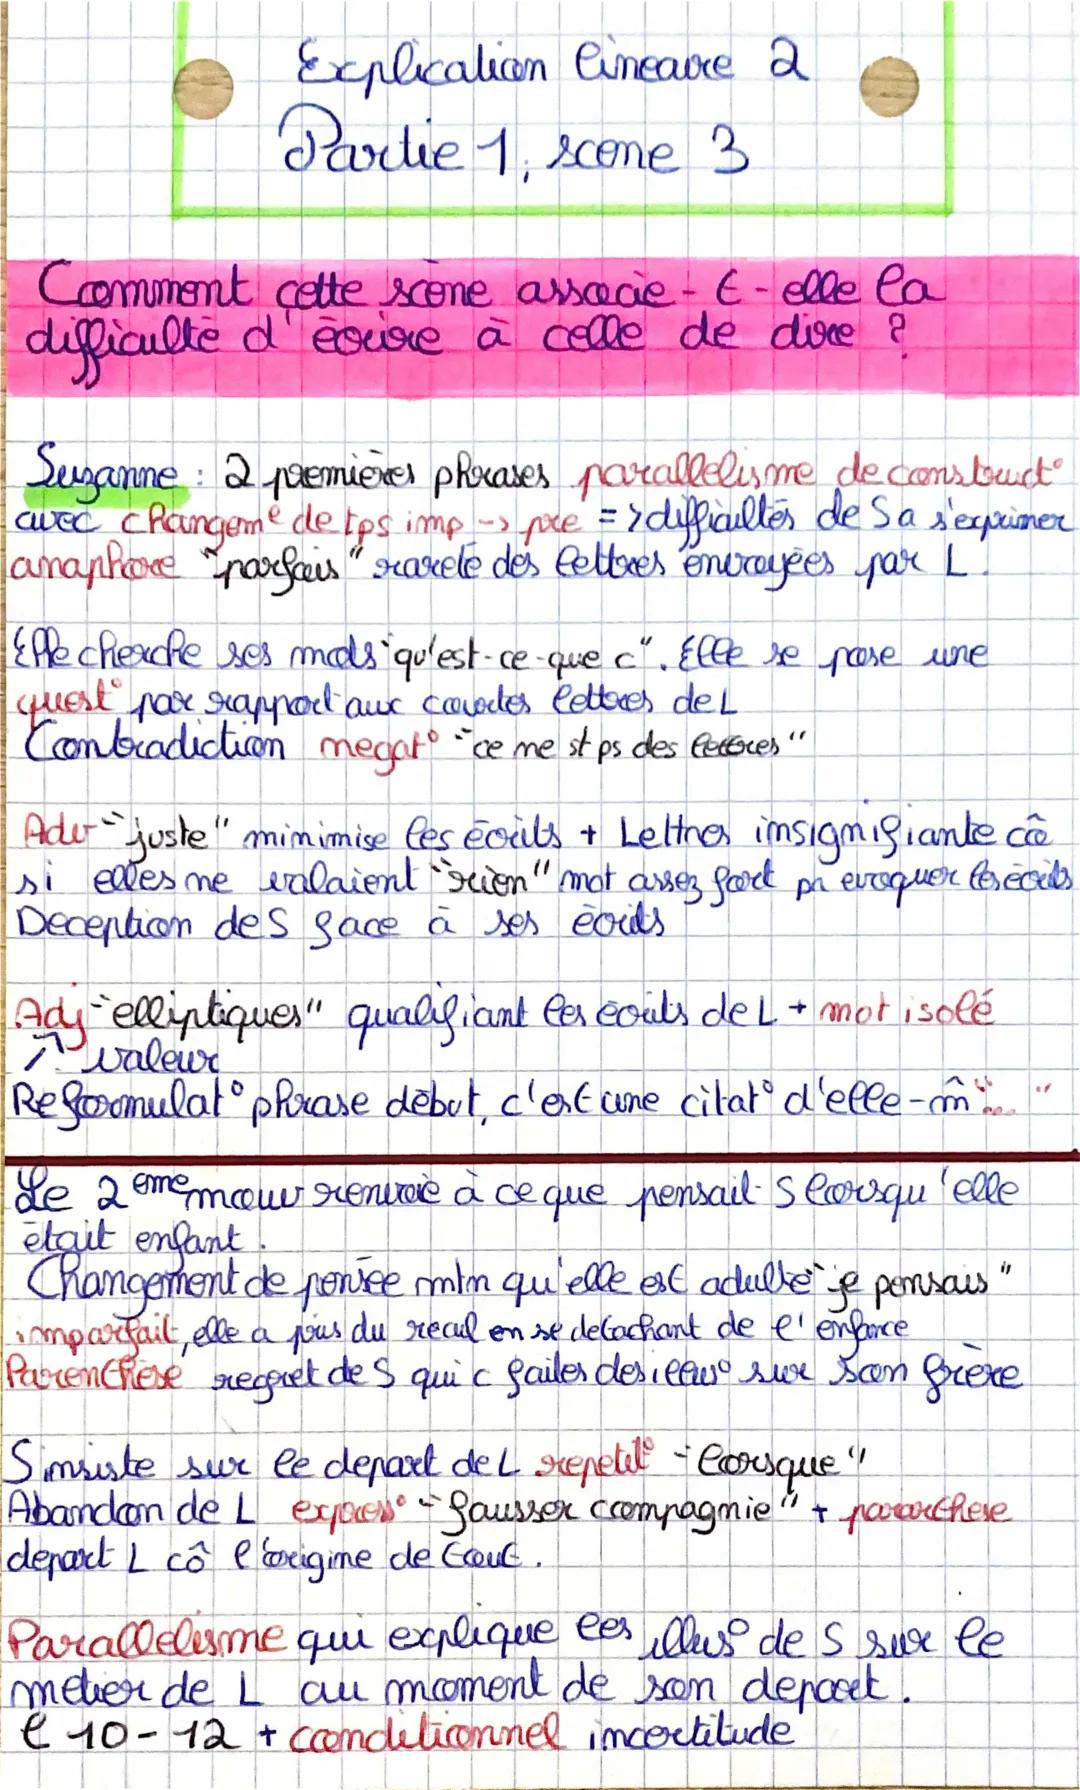 Explication lineaire 2
Partie 1, scene 3
Comment cette scène associe-t-elle la
difficulté d'écrire à celle de dire ?
Suzanne : 2 premières phrases parallelisme de construct°
avec changemt de tps imp -> pre => difficultés de S a s'exprimer
anaphore "parfois" rareté des lettres envoyées par L.
Elle cherche ses mots "qu'est-ce-que c". Elle se pose une
quest° par rapport aux courtes lettres de L
Contradiction negat° "ce ne st ps des lettres"
Adv "juste" minimise les écrits + Lettres insignifiante cô
si elles ne valaient "rien" mot assez fort pr evoquer les écrits
Deception de S face à ses écrits
Adj "elliptiques" qualifiant les écrits de L + mot isolé
↗ valeur
Reformulat° phrase début, c'est une citat° d'elle-m̂ "... "
Le 2 eme mouv renvoie à ce que pensait S lorsqu'elle
était enfant.
Changement de pensée mtn qu'elle est adulte "je pensais"
imparfait, elle a pris du recul en se detachant de l'enfance
Parenthèse regret de S qui c faites des illus° sur son frère
S insiste sur le depart de L repetit° "lorsque"
Abandon de L express° "fausser compagnie" + pararthese
depart L cô l'origine de tout.
Parallelisme qui explique les illus° de S sur le
métier de L au moment de son depart.
l 10-12 + conditionnel incertitude